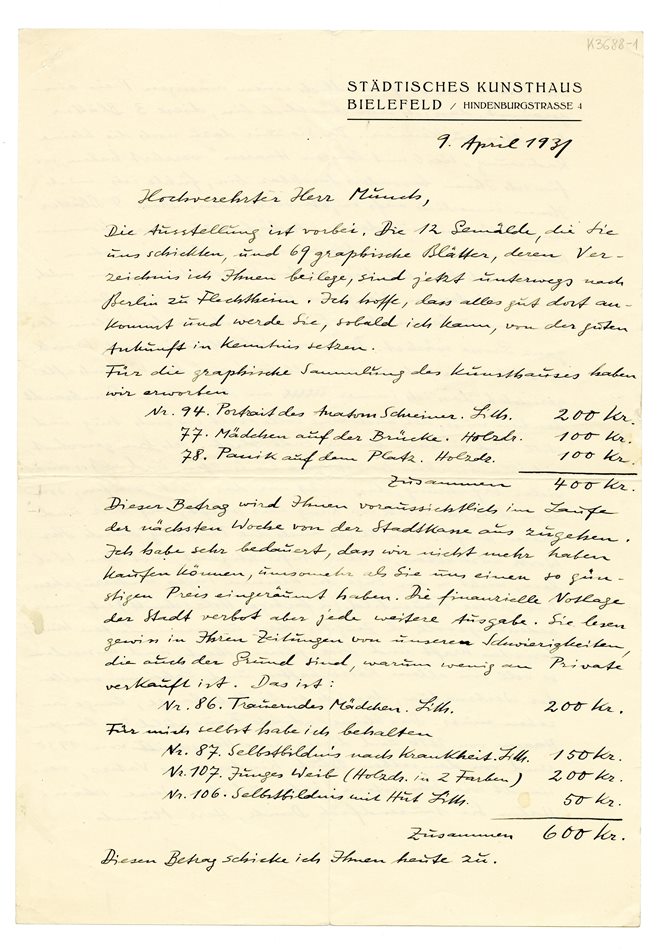 K3688-1
STÄDTISCHES KUNSTHAUS
BIELEFELD / HINDENBURGSTRASSE 4
9. April 1931
Hochverehrter Herr Munch,
Die Ausstellung ist vorbei. Die 12 Gemälde, die Sie
uns schickten, und 69 graphische Blätter, deren Ver-
zeichnis ich Ihnen beilege, sind jetzt unterwegs nach
Berlin zu Flechtheim. Ich hoffe, dass alles gut dort an-
kommt und werde Sie, sobald ich kann, von der guten
Ankunft in Kenntnis setzen.
Für die graphische Sammlung des Kunsthauses haben
wir erworben
Nr. 94. Portrait des Anatom Schreiner. Lith. 200 Kr.
77. Mädchen auf der Brücke. Holzdr. 100 Kr.
78. Panik auf dem Platz. Holzdr. 100 Kr.
Zusammen 400 Kr.
Dieser Betrag wird Ihnen voraussichtlich im Laufe
der nächsten Woche von der Stadtkasse aus zugehen.
Ich habe sehr bedauert, dass wir nicht mehr haben
kaufen können, umsomehr als Sie uns einen so gün-
stigen Preis eingeräumt haben. Die finanzielle Notlage
der Stadt verbot aber jede weitere Ausgabe. Sie lesen
gewiss in Ihren Zeitungen von unseren Schwierigkeiten,
die auch der Grund sind, warum wenig an Private
verkauft ist. Das ist:
Nr. 86. Trauerndes Mädchen. Lith. 200 Kr.
Für mich selbst habe ich behalten
Nr. 87. Selbstbildnis nach Krankheit. Lith. 150 Kr.
Nr. 107. Junges Weib (Holzdr. in 2 Farben) 200 Kr.
Nr. 106. Selbstbildnis mit Hut Lith. 50 Kr.
Zusammen 600 Kr.
Diesen Betrag schicke ich Ihnen heute zu.